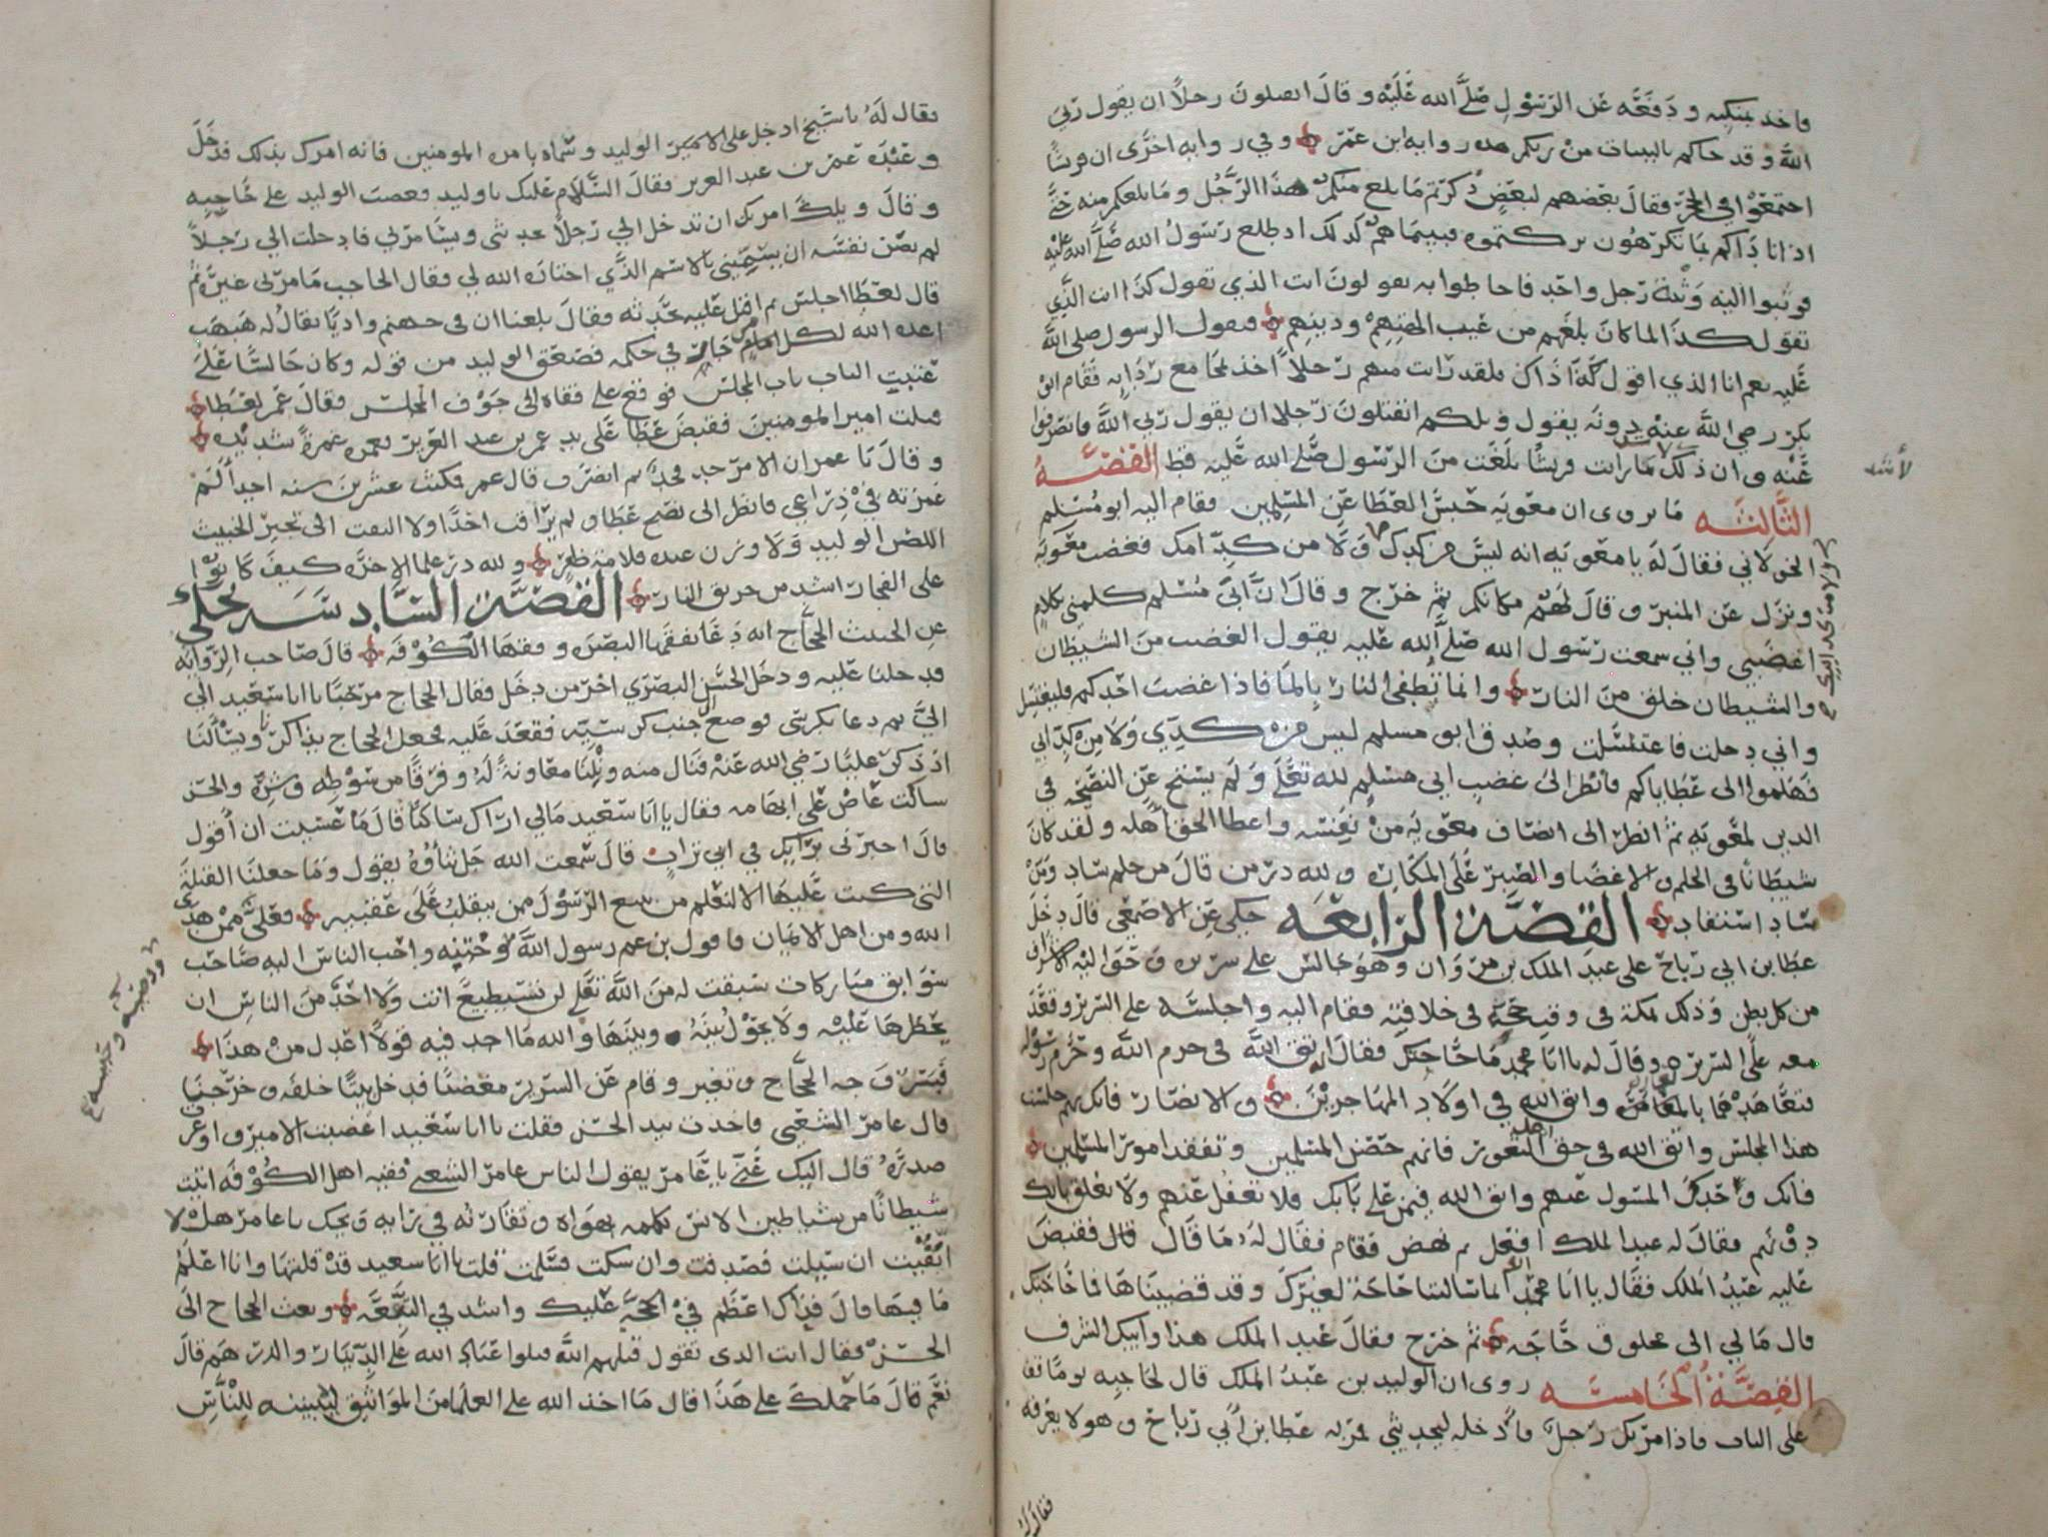 فاخذ بمنكبه و دفعه عن الرسول صلى الله عليه و قال اتقتلون رجلاً ان يقول ربي
الله و قد جاكم بالبينات من ربكم هذه روايه ابن عمر وفي روايه اخرى ان قريشاً
اجتمعوا في الحجر فقال بعضهم لبعض ذكرتم ما بلغ منكم هذا الرجل و ما بلغكم منه حتى
اذا اتاكم بما تكرهون تركتموه فبينما هم كذلك اذ طلع رسول الله صلى الله عليه
فوثبوا اليه وثبة رجل واحد فاحاطوا به يقولون انت الذي تقول كذا انت الذي
تقول كذا لما كان بلغهم من عيب الهتهم ودينهم فيقول الرسول صلى الله
عليه نعم انا الذي اقول ذاك فلقد رايت منهم رجلاً اخذ بمجامع ردايه فقام ابو
بكر رضي الله عنه دونه يقول ويلكم اتقتلون رجلا ان يقول ربي الله فانصرفوا
عنه وان ذلك ما رايت قريشاً بلغت من الرسول صلى الله عليه قط القصه
لأشد
الثالثه ما يروى ان معويه حبس العطا عن المسلمين فقام اليه ابو مسلم
الخولاني فقال له يا معويه انه ليس من كدك ولا من كد امك فغضب معويه
ولا من كد ابيك
ونزل عن المنبر وقال لهم مكانكم ثم خرج وقال ان ابي مسلم كلمني بكلام
اغضبني واني سمعت رسول الله صلى الله عليه يقول الغضب من الشيطان
والشيطان خلق من النار وانما تطفى النار بالما فاذا غضب احدكم فليغتسل
واني دخلت فاغتسلت وصدق ابو مسلم ليس من كدي ولا من كد ابي
فهلموا الى عطاياكم فانظر الى غضب ابي مسلم لله تعالى ولم يستح عن النصحه في
الدين لمعويه ثم انظر الى انصاف معويه من نفسه واعطا الحق اهله ولقد كان
شيطانا في الحلم والاغضا والصبر على المكاره ولله در من قال من حلم ساد ومن
ساد استفاد القصة الرابعه حكى عن الاصمعي قال دخل
عطا بن ابي رباح على عبد الملك بن مروان وهو جالس على سريره وحواليه الاشراف
من كل بطن وذلك بمكة في وقت حجه في خلافته فقام اليه واجلسه على السرير وقعد
معه على السرير وقال له يا ابا محمد ما حاجتك فقال اتق الله في حرم الله وحرم رسوله
فتعاهدهما بالعماره واتق الله في اولاد المهاجرين والانصار فانك بهم جلست
هذا المجلس واتق الله في اهل الثغور فانهم حصن المسلمين وتفقد امور المسلمين
فانك وحدك المسول عنهم واتق الله فيمن على بابك فلا تغفل عنهم ولا تغلق بابك
دونهم فقال له عبد الملك افعل ثم نهض فقام فقال له ما قال قال فقبض
عليه عبد الملك فقال يا ابا محمد انما سالتنا حاجة لغيرك وقد قضيناها فما حاجتك
قال مالي الى مخلوق حاجه ثم خرج فقال عبد الملك هذا وابيك الشرف
القصة الخامسه روى ان الوليد بن عبد الملك قال لحاجبه يوما قف
على الباب فاذا مر بك رجل فادخله ليحدثني فمر به عطا بن ابي رباح وهو لا يعرفه
فقال له
فقال له يا شيخ ادخل على الامير الوليد وسماه بامير المومنين فانه امرك بذلك فدخل
وعنده عمر بن عبد العزيز فقال السلام عليك يا وليد فغضب الوليد على حاجبه
وقال ويلك امرتك ان تدخل الي رجلاً يحدثني ويسامرني فادخلت الي رجلاً
لم يرض نفسه ان يسميني بالاسم الذي اختاره الله لي فقال الحاجب ما مر بي غيره ثم
قال لعطا اجلس ثم اقبل عليه يحدثه فقال بلغنا ان في جهنم واديا يقال له هبهب
اعده الله لكل امام جاير في حكمه فصعق الوليد من قوله وكان جالسا على
عتبت الباب باب المجلس فوقع على قفاه الى جوف المجلس فقال عمر لعطا
قتلت امير المومنين فقبض عطا على يد عمر بن عبد العزيز فغمزه غمزة شديده
وقال يا عمر ان الامر جد فجد ثم انصرف قال عمر فمكثت عشرين سنه اجد الم
غمزته في ذراعي فانظر الى نصح عطا ولم يراقب احدًا ولا التفت الى تجبر الخبيث
اللص الوليد ولا وزن عنده قلامة ظفر ولله در علما الاخره كيف كانوا
على الفجار اشد من حريق النار القصة السادسه يُحكى
عن الخبيث الحجاج انه دعا بفقها البصره وفقها الكوفه قال صاحب الروايه
فدخلنا عليه ودخل الحسن البصري اخر من دخل فقال الحجاج مرحبا يا ابا سعيد الي
الي ثم دعا بكرسي فوضع الى جنب كرسيه فقعد عليه فجعل الحجاج يذاكرنا ويسألنا
اذ ذكر عليا رضي الله عنه فنال منه ونلنا معاونة له وفرقا من سوطه وشره والحسن
ساكت عاض على ابهامه فقال يا ابا سعيد مالي اراك ساكتا قال ما عسيت ان اقول
قال اخبرني برايك في ابي تراب قال سمعت الله جل ثناؤه يقول وما جعلنا القبلة
التي كنت عليها الا لنعلم من يتبع الرسول ممن ينقلب على عقبيه فعلي ممن هدى
الله ومن اهل الايمان فاقول بن عم رسول الله وختنه واحب الناس اليه صاحب
سوابق مباركات سبقت له من الله تعالى لن تستطيع انت ولا احد من الناس ان
يحظرها عليه ولا يحول بينه وبينها والله ما اجد فيه قولا اعدل من هذا
فبسر وجه الحجاج وتغير وقام عن السرير مغضبا فدخل بيتا خلفه وخرجنا
قال عامر الشعبي فاخذت بيد الحسن فقلت يا ابا سعيد اغضبت الامير واوغرت
صدره قال اليك عني يا عامر يقول الناس عامر الشعبي فقيه اهل الكوفه اتيت
شيطانا من شياطين الانس تكلمه بهواه وتقاربه في رايه ويحك يا عامر هل لا
اتقيت ان سيلت فصدقت وان سكت فسلمت قلت يا ابا سعيد قد قلتها وانا اعلم
ما فيها قال فذاك اعظم في الحجة عليك واشد في التبعه وبعث الحجاج الى
الحسن فقال انت الذي تقول قتلهم الله قتلوا عباد الله على الدينار والدرهم قال
نعم قال ما حملك على هذا قال ما اخذ الله على العلما من المواثيق ليبيننه للناس